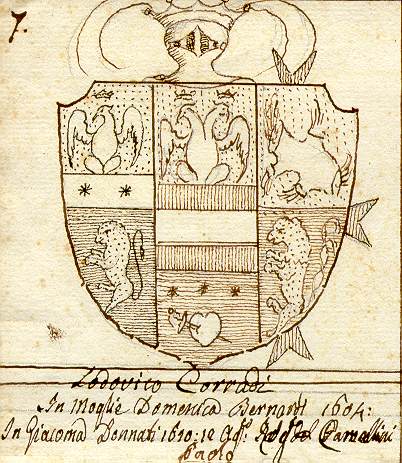 7.
Lodovico Corradi
In Moglie Domenica Bernardi 1604:
In Giacoma Donnati 1610: 12 Ag.º
Paolo